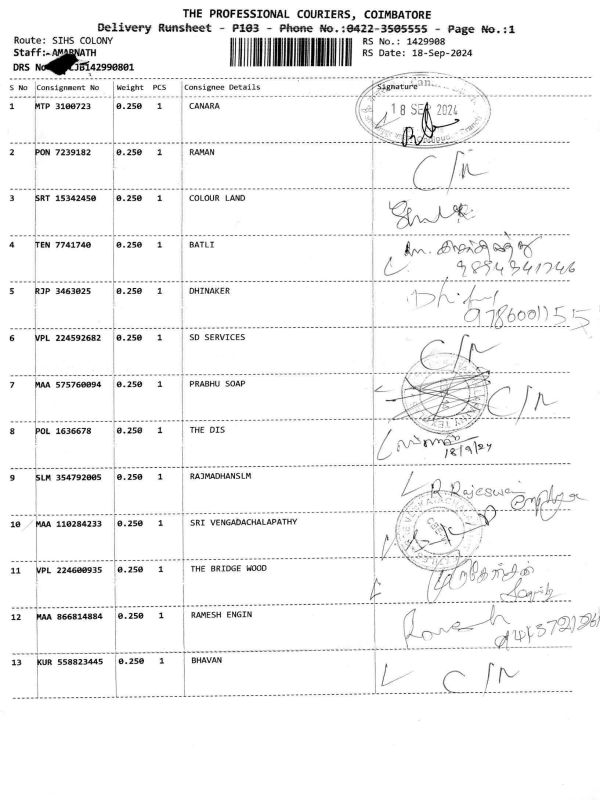 THE PROFESSIONAL COURIERS, COIMBATORE
Delivery Runsheet - P103 - Phone No.:0422-3505555 - Page No.:1
Route: SIHS COLONY RS No.: 1429908
Staff:- AMARNATH RS Date: 18-Sep-2024
DRS No 142990801
S No Consignment No Weight PCS Consignee Details Signature
1 MTP 3100723 0.250 1 CANARA 18 SEP 2024
2 PON 7239182 0.250 1 RAMAN C/R
3 SRT 15342450 0.250 1 COLOUR LAND
4 TEN 7741740 0.250 1 BATLI
9894341746
5 RJP 3463025 0.250 1 DHINAKER
9786001155
6 VPL 224592682 0.250 1 SD SERVICES C/R
7 MAA 575760094 0.250 1 PRABHU SOAP C/R
8 POL 1636678 0.250 1 THE DIS
18/9/24
9 SLM 354792005 0.250 1 RAJMADHANSLM R. Rajeswari
10 MAA 110284233 0.250 1 SRI VENGADACHALAPATHY
11 VPL 224600935 0.250 1 THE BRIDGE WOOD
12 MAA 866814884 0.250 1 RAMESH ENGIN Ramesh
13 KUR 558823445 0.250 1 BHAVAN C/R